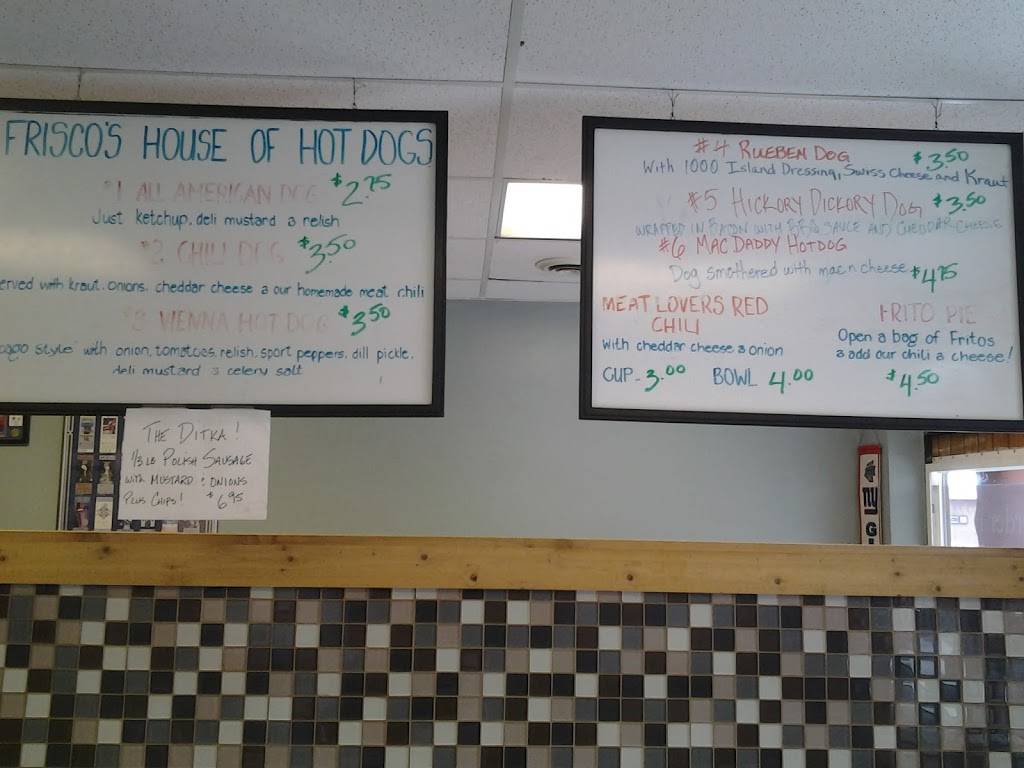 FRISCO'S HOUSE OF HOT DOGS
#1 ALL AMERICAN DOG $2.75
Just ketchup, deli mustard & relish
#2 CHILI DOG $3.50
erved with kraut, onions, cheddar cheese & our homemade meat chili
#3 VIENNA HOT DOG $3.50
cago style" with onion, tomatoes, relish, sport peppers, dill pickle,
deli mustard & celery salt
THE DITKA!
1/3 LB POLISH SAUSAGE
WITH MUSTARD & ONIONS
PLUS CHIPS! $6.95
#4 RUEBEN DOG $3.50
With 1000 Island Dressing, Swiss Cheese and Kraut
#5 HICKORY DICKORY DOG $3.50
WRAPPED IN BACON WITH BBQ SAUCE AND CHEDDAR CHEESE
#6 MAC DADDY HOTDOG
Dog smothered with mac n cheese $4.75
MEAT LOVERS RED
CHILI
with cheddar cheese & onion
CUP - 3.00 BOWL 4.00
FRITO PIE
Open a bag of Fritos
& add our chili & cheese!
$4.50
NY
G